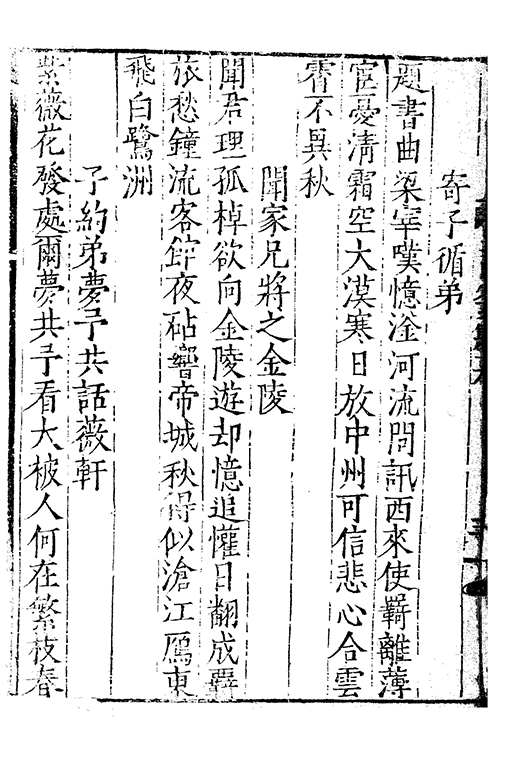 寄子循弟
題書曲梁宰嘆憶淦河流問訊西來使羇離薄
宦憂清霜空大漠寒日放中州可信悲心合雲
霄不異秋
聞家兄將之金陵
聞君理孤棹欲向金陵遊却憶追懽日翻成羇
旅愁鐘流客館夜砧響帝城秋得似滄江鴈東
飛白鷺洲
子約弟夢予共話薇軒
紫薇花發處爾夢共予看大被人何在繁枝春